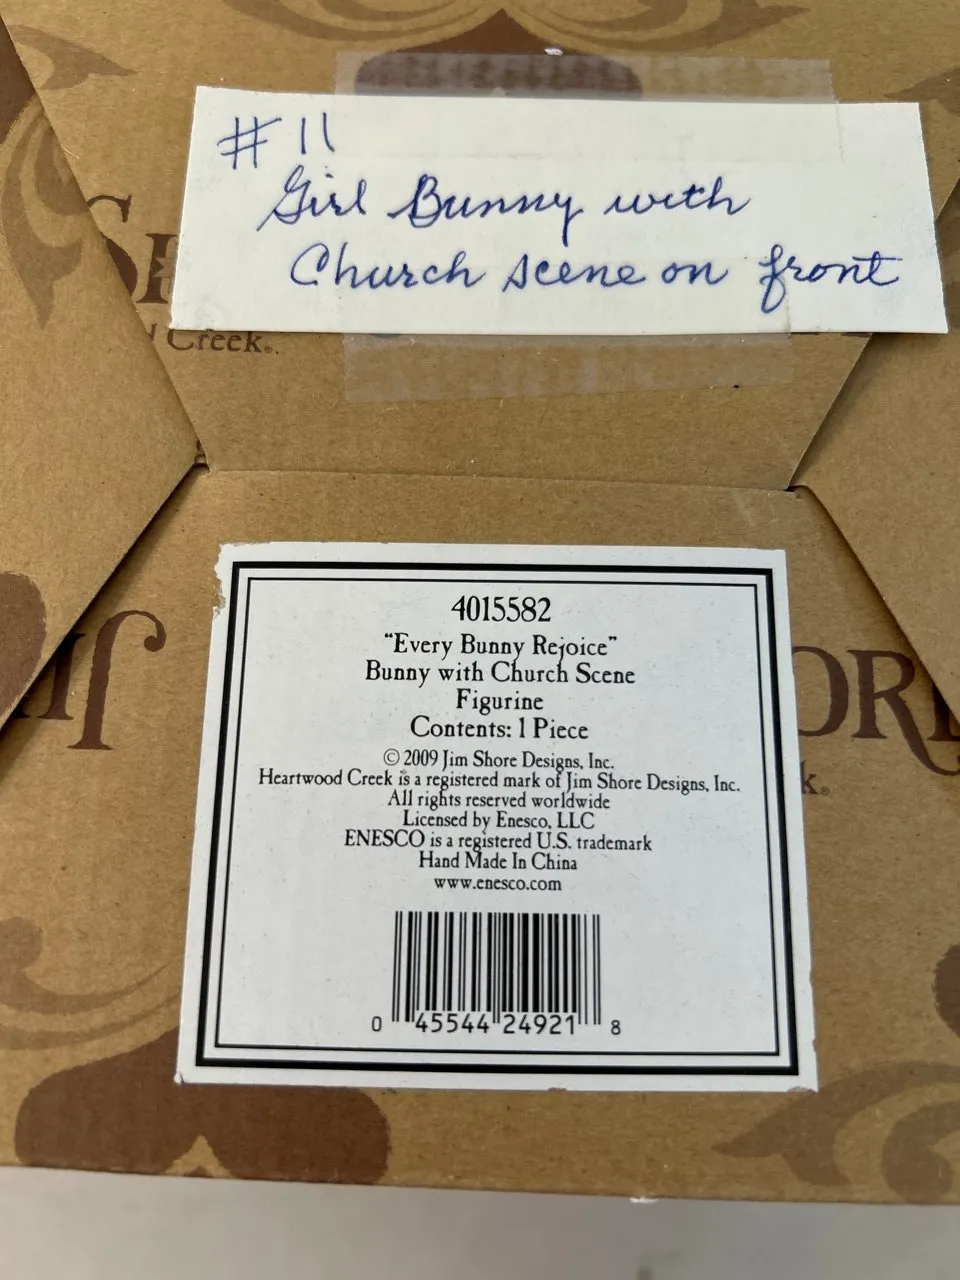 # 11
Girl Bunny with
Church scene on front
Creek®.
4015582
“Every Bunny Rejoice”
Bunny with Church Scene
Figurine
Contents: 1 Piece
© 2009 Jim Shore Designs, Inc.
Heartwood Creek is a registered mark of Jim Shore Designs, Inc.
All rights reserved worldwide
Licensed by Enesco, LLC
ENESCO is a registered U.S. trademark
Hand Made In China
www.enesco.com
0 45544 24921 8